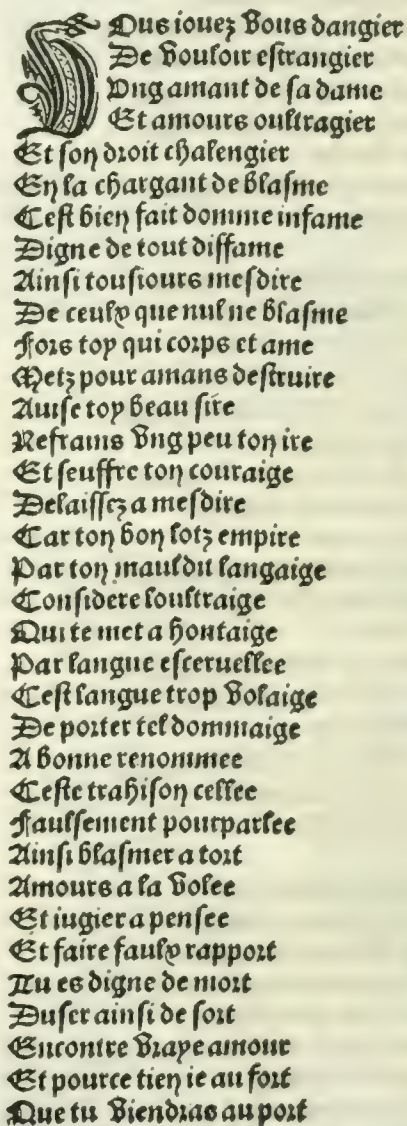 Vous iouez vous dangier
De vouloir estrangier
Vng amant de sa dame
Et amours oultragier
Et son droit chalengier
En la chargant de blasme
Cest bien fait domme infame
Digne de tout diffame
Ainsi tousiours mesdire
De ceulx que nul ne blasme
Fors toy qui corps et ame
Metz pour amans destruire
Auise toy beau sire
Refrains vng peu ton ire
Et seuffre ton couraige
Delaissez a mesdire
Car ton bon lotz empire
Par ton mauldit langaige
Considere loultraige
Qui te met a hontaige
Par langue esceruellee
Cest langue trop volaige
De porter tel dommaige
A bonne renommee
Ceste trahison cellee
Faulsement pourparlee
Ainsi blasmer a tort
Amours a la volee
Et iugier a pensee
Et faire faulx rapport
Tu es digne de mort
Duser ainsi de sort
Encontre vraye amour
Et pource tien ie au fort
Que tu viendras au port